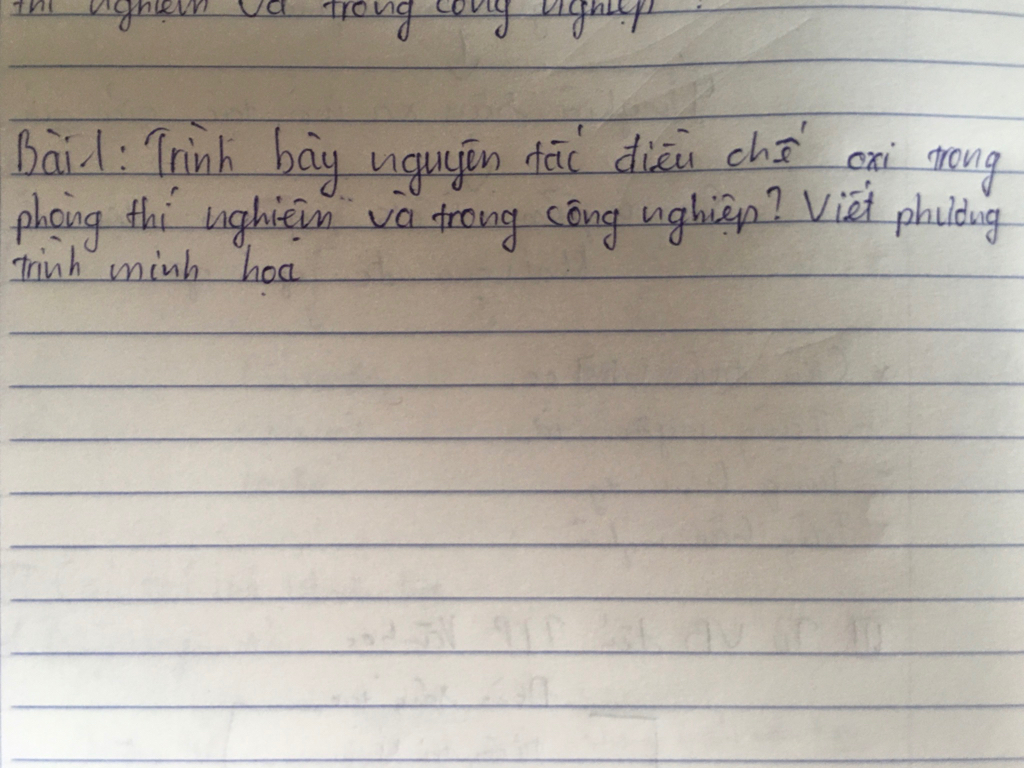 thí nghiệm và trong công nghiệp ?
Bài 1: Trình bày nguyên tắc điều chế oxi trong
phòng thí nghiệm và trong công nghiệp? Viết phương
trình minh họa